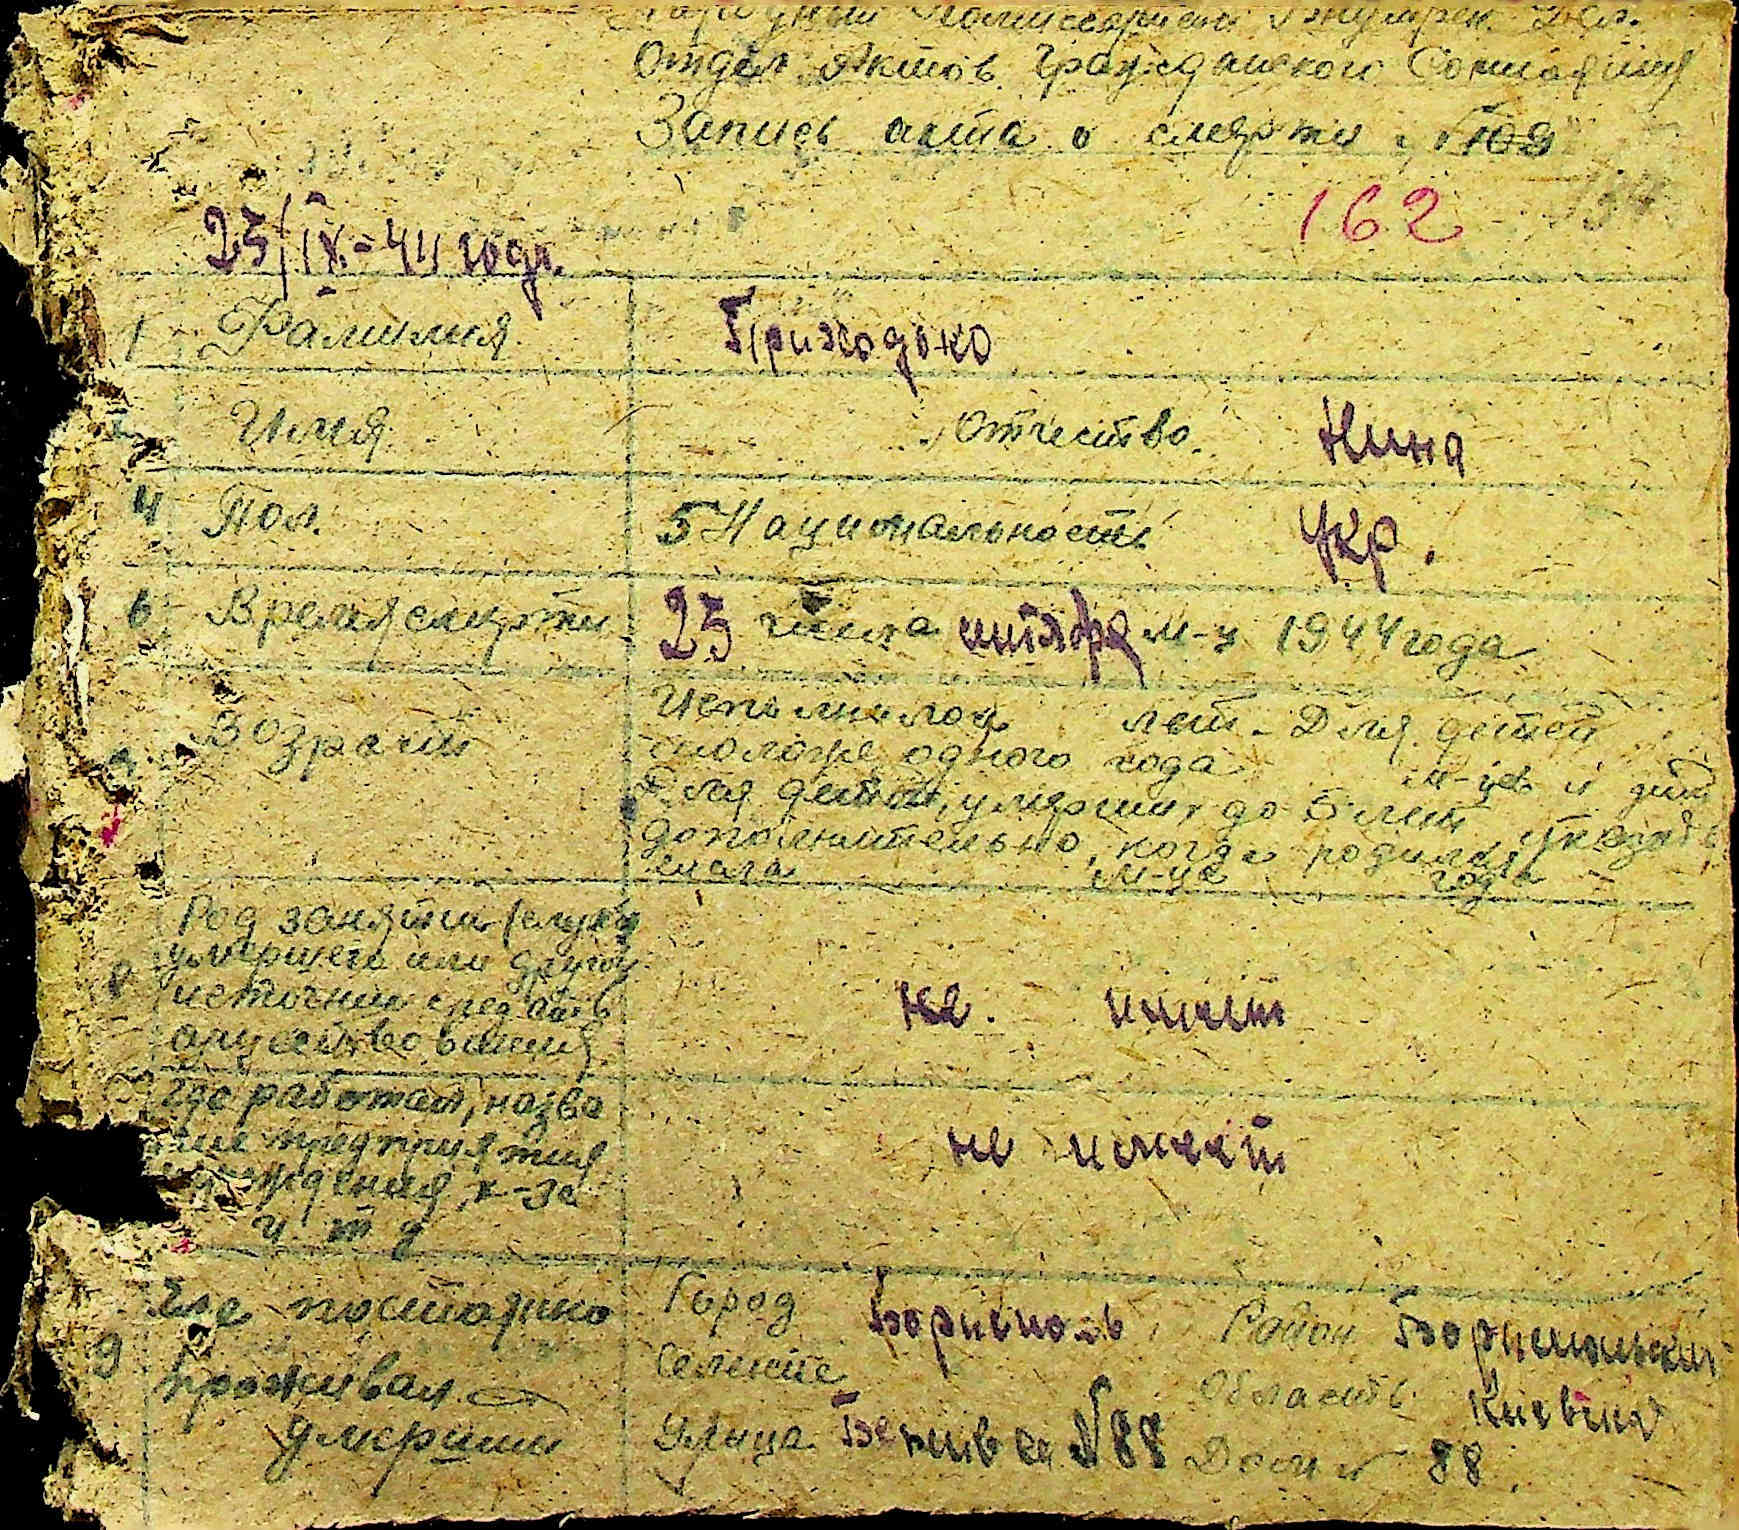 Народный Комиссариат Внутрен. Дел.
Отдел Актов Гражданского Состояния
Запись акта о смерти № 109
162
25/IX-44 года.
1 Фамилия Приходько
Имя Отчество. Нина
4 Пол. 5 Национальность Укр.
6 Время смерти 25 числа м-ц 1944 года
Возраст Исполнилось лет. Для детей
моложе одного года м-цев и дней
Для детей, умерших до 5 лет указать
дополнительно, когда родился
числа м-ца года
8 Род занятий (служб
умершего или другой
источник средств
существования
не. имеет
Где работал, назва
ние предприятия
учреждения, к-за
и т д
не имеет
9 Где постоянно
Проживал
умерший
Город Борисполь Район Бориспольский
селение Область Киевская
Улица №88 Дом № 88.